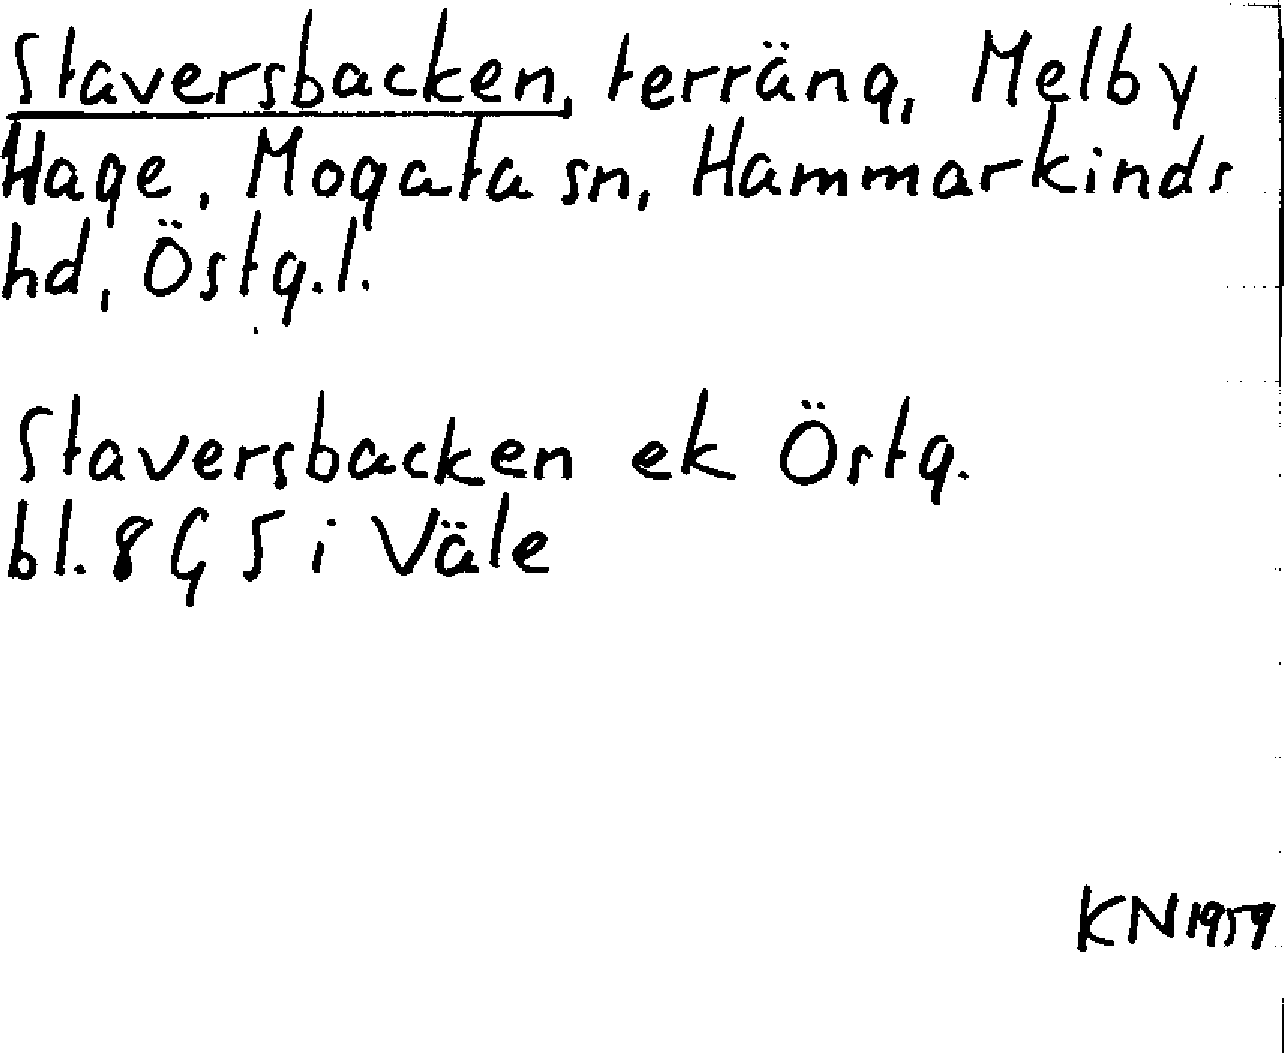 Staversbacken, terräng, Melby
Hage, Mogata sn, Hammarkinds
hd, Östg.l.
Staversbacken ek Östg.
bl. 8 G 5 i Väle
KN 1959